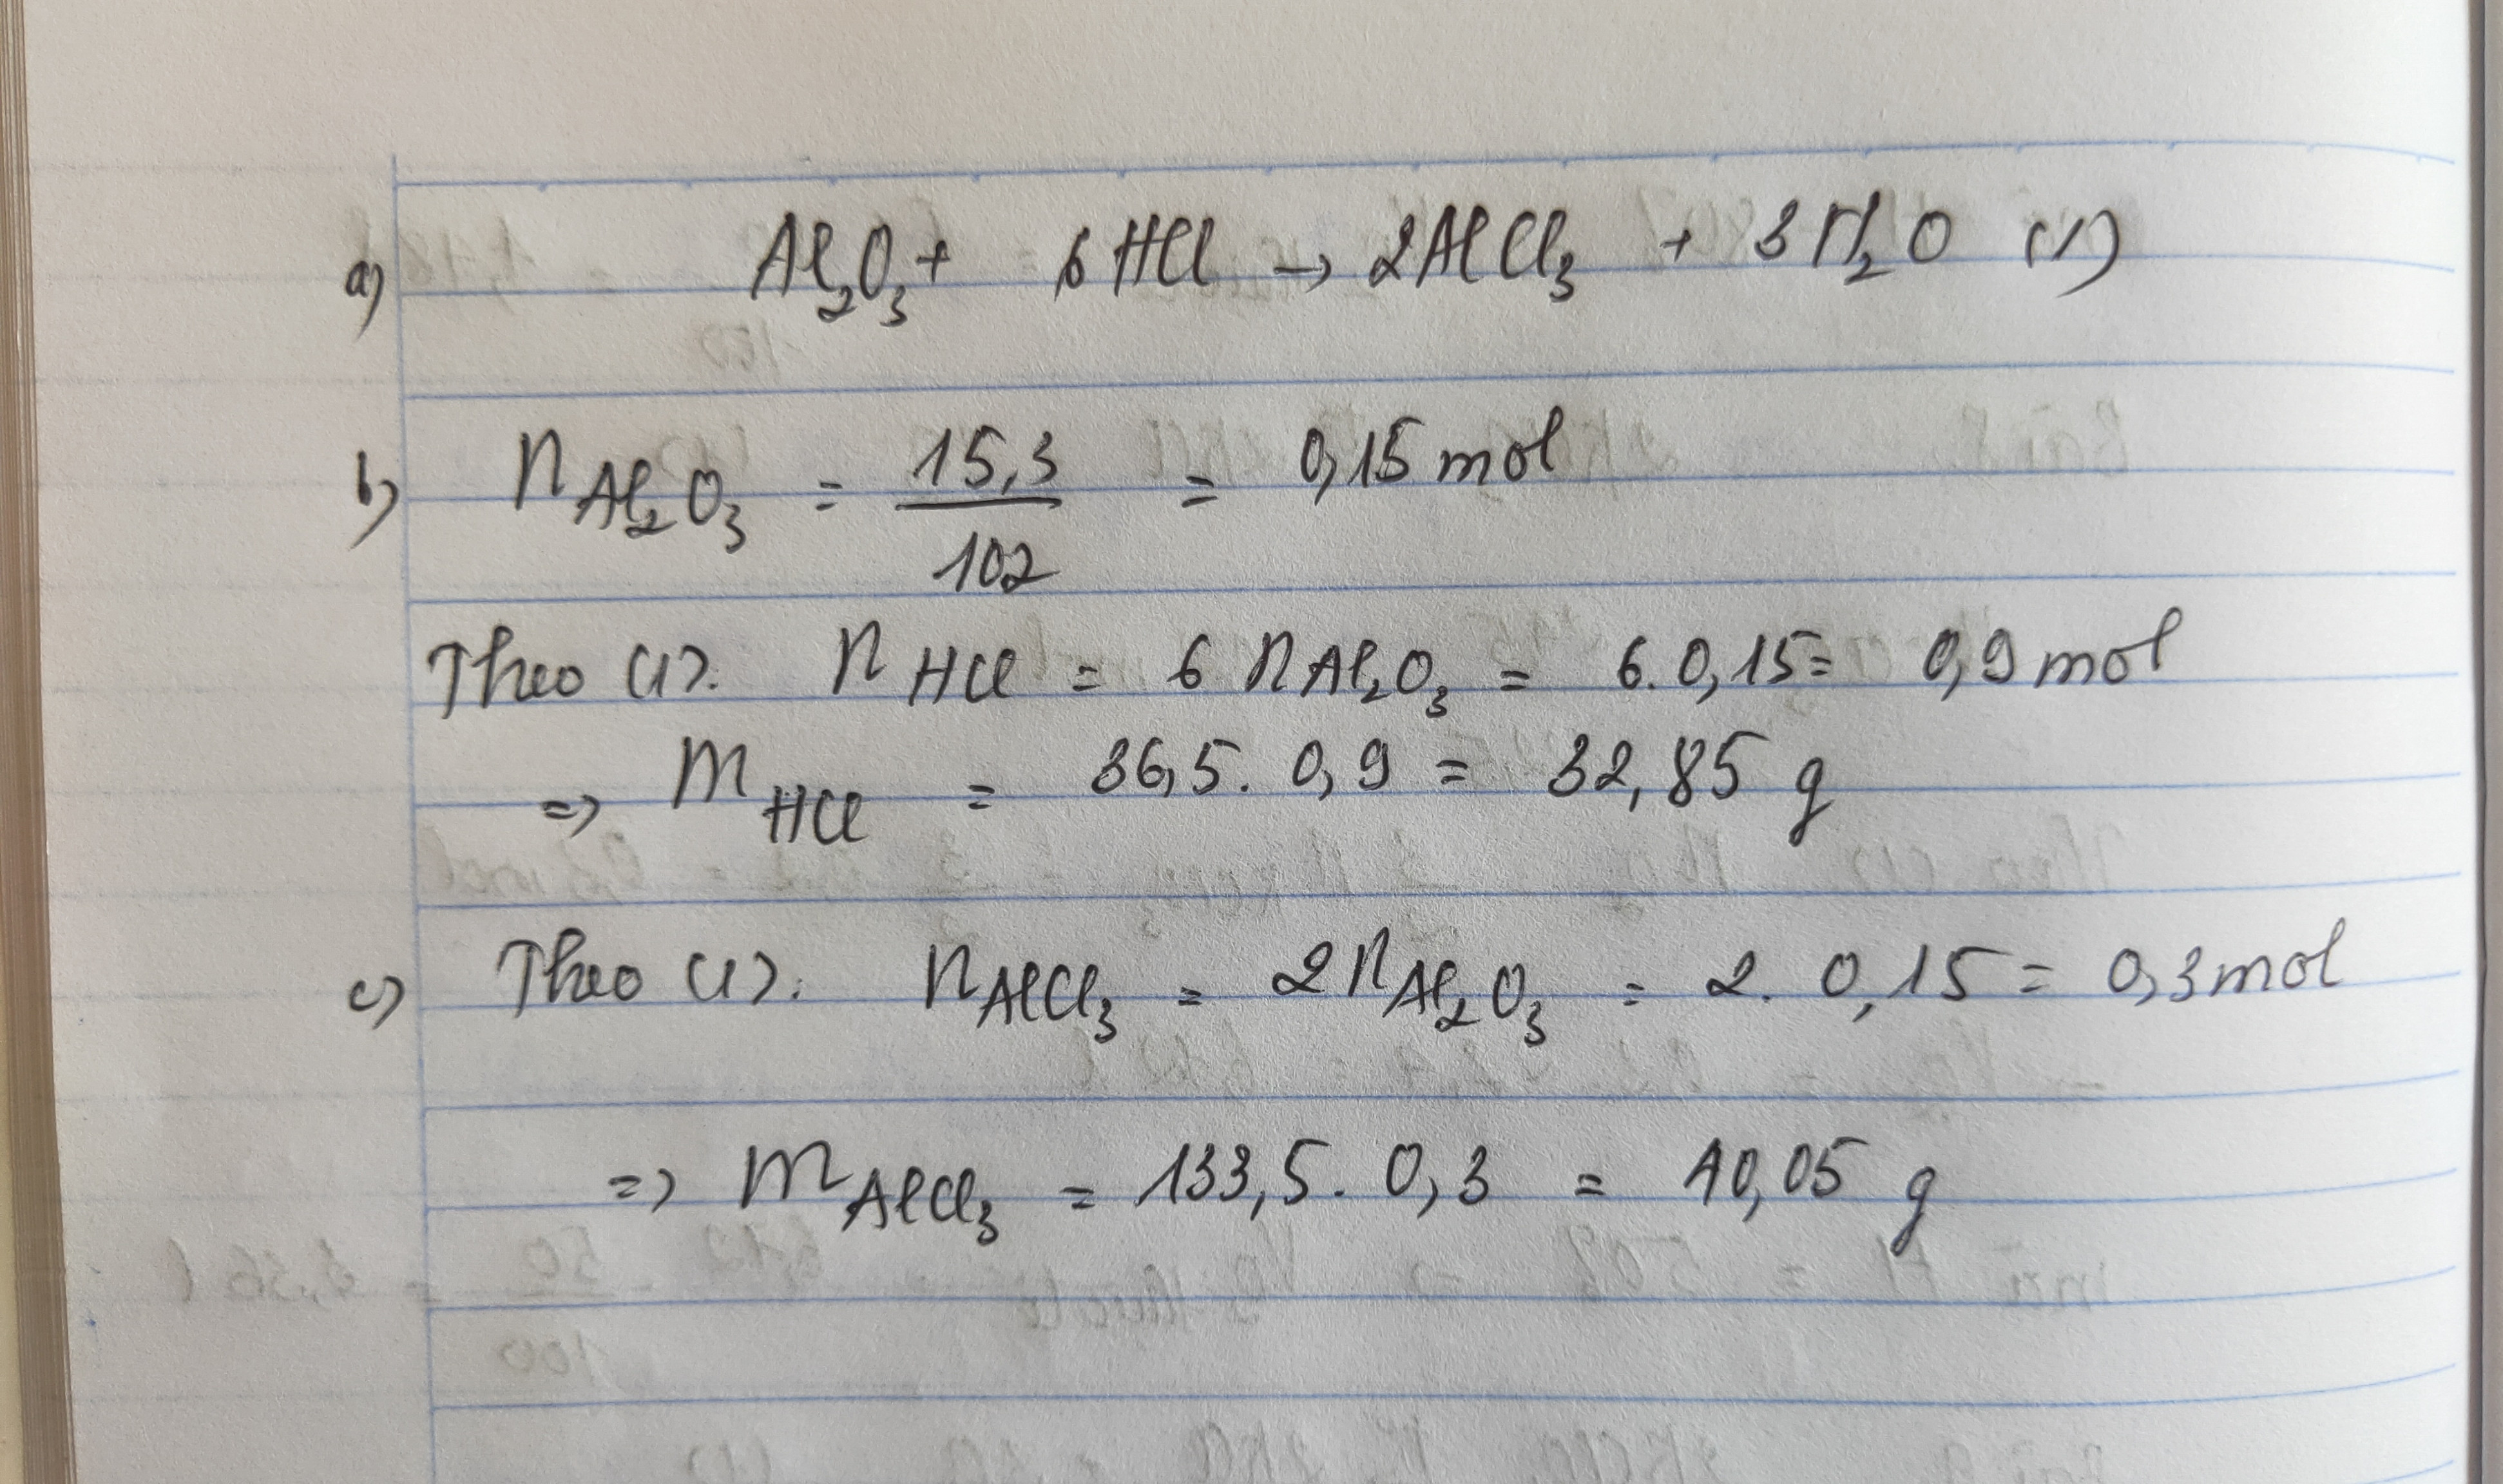 a) Al₂O₃ + 6HCl → 2AlCl₃ + 3H₂O (1)
b) n Al₂O₃ = 15,3 / 102 = 0,15 mol
Theo (1): n HCl = 6 n Al₂O₃ = 6. 0,15 = 0,9 mol
=> m HCl = 36,5. 0,9 = 32,85 g
c) Theo (1): n AlCl₃ = 2 n Al₂O₃ = 2. 0,15 = 0,3 mol
=> m AlCl₃ = 133,5. 0,3 = 40,05 g